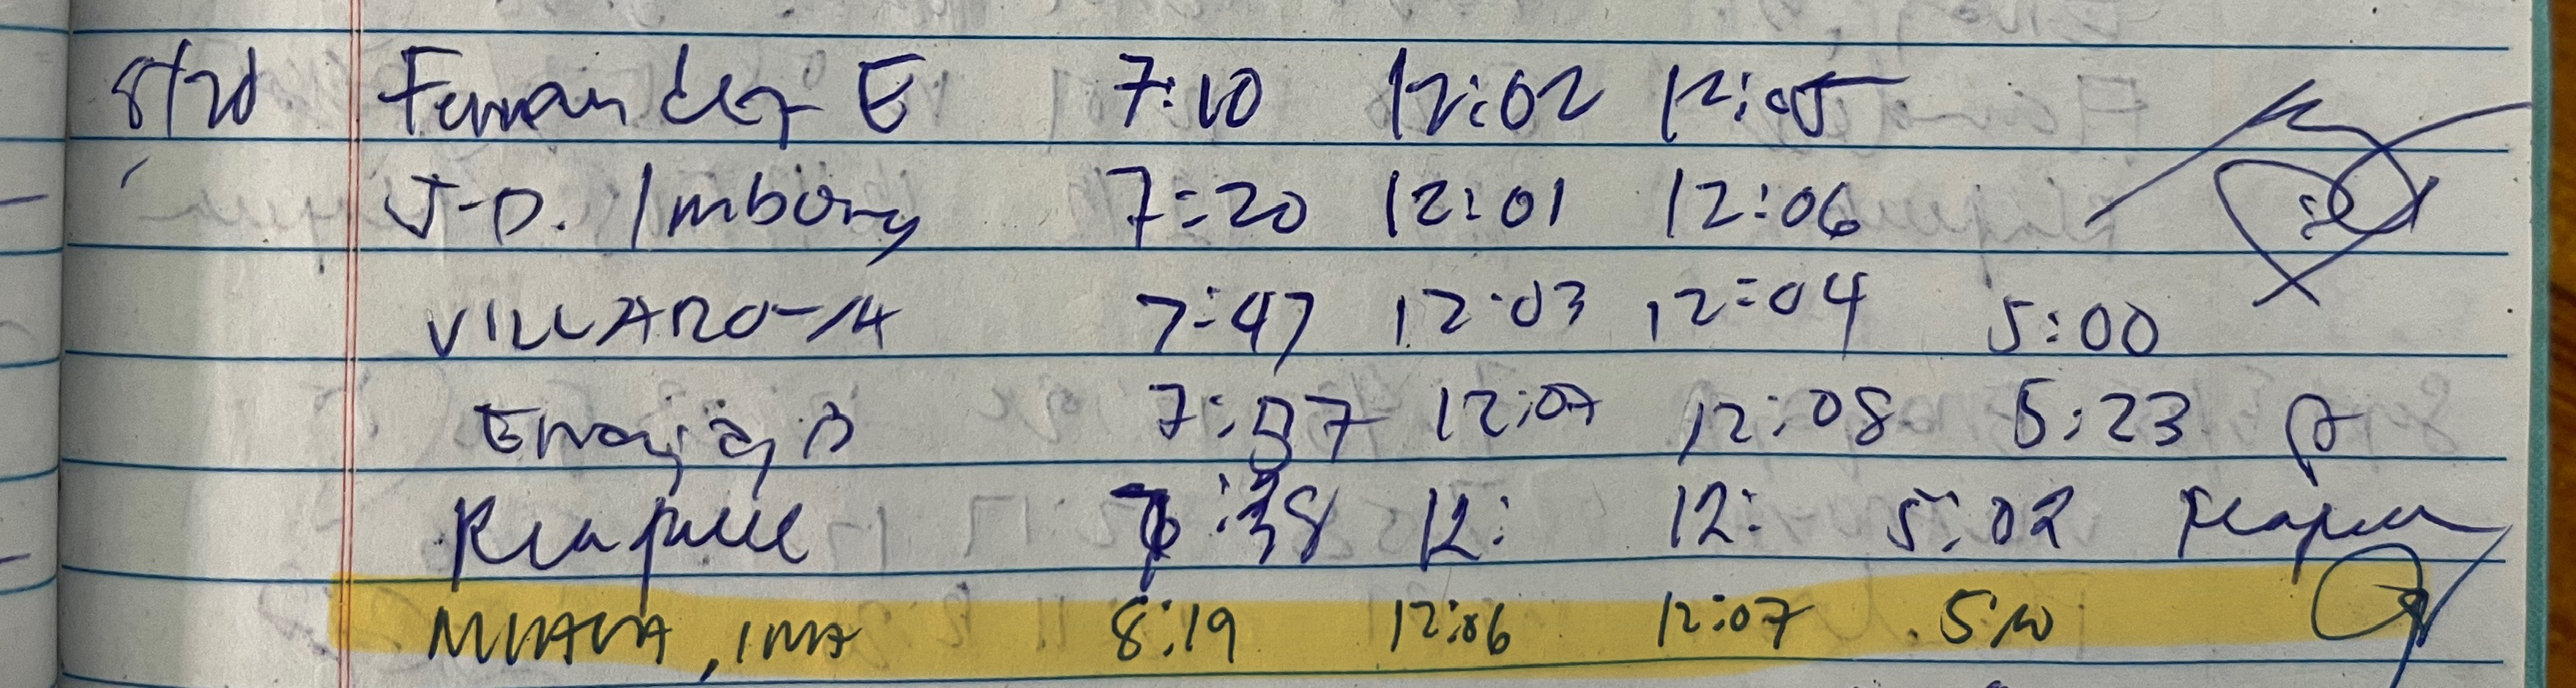 8/20 Fernandez E 7:10 12:02 12:05
J-D. Imbong 7:20 12:01 12:06
VILLARO-A 7:47 12:03 12:04 5:00
7:37 12:07 12:08 5:23
7:38 12: 12: 5:02
, IMA 8:19 12:06 12:07 5:10